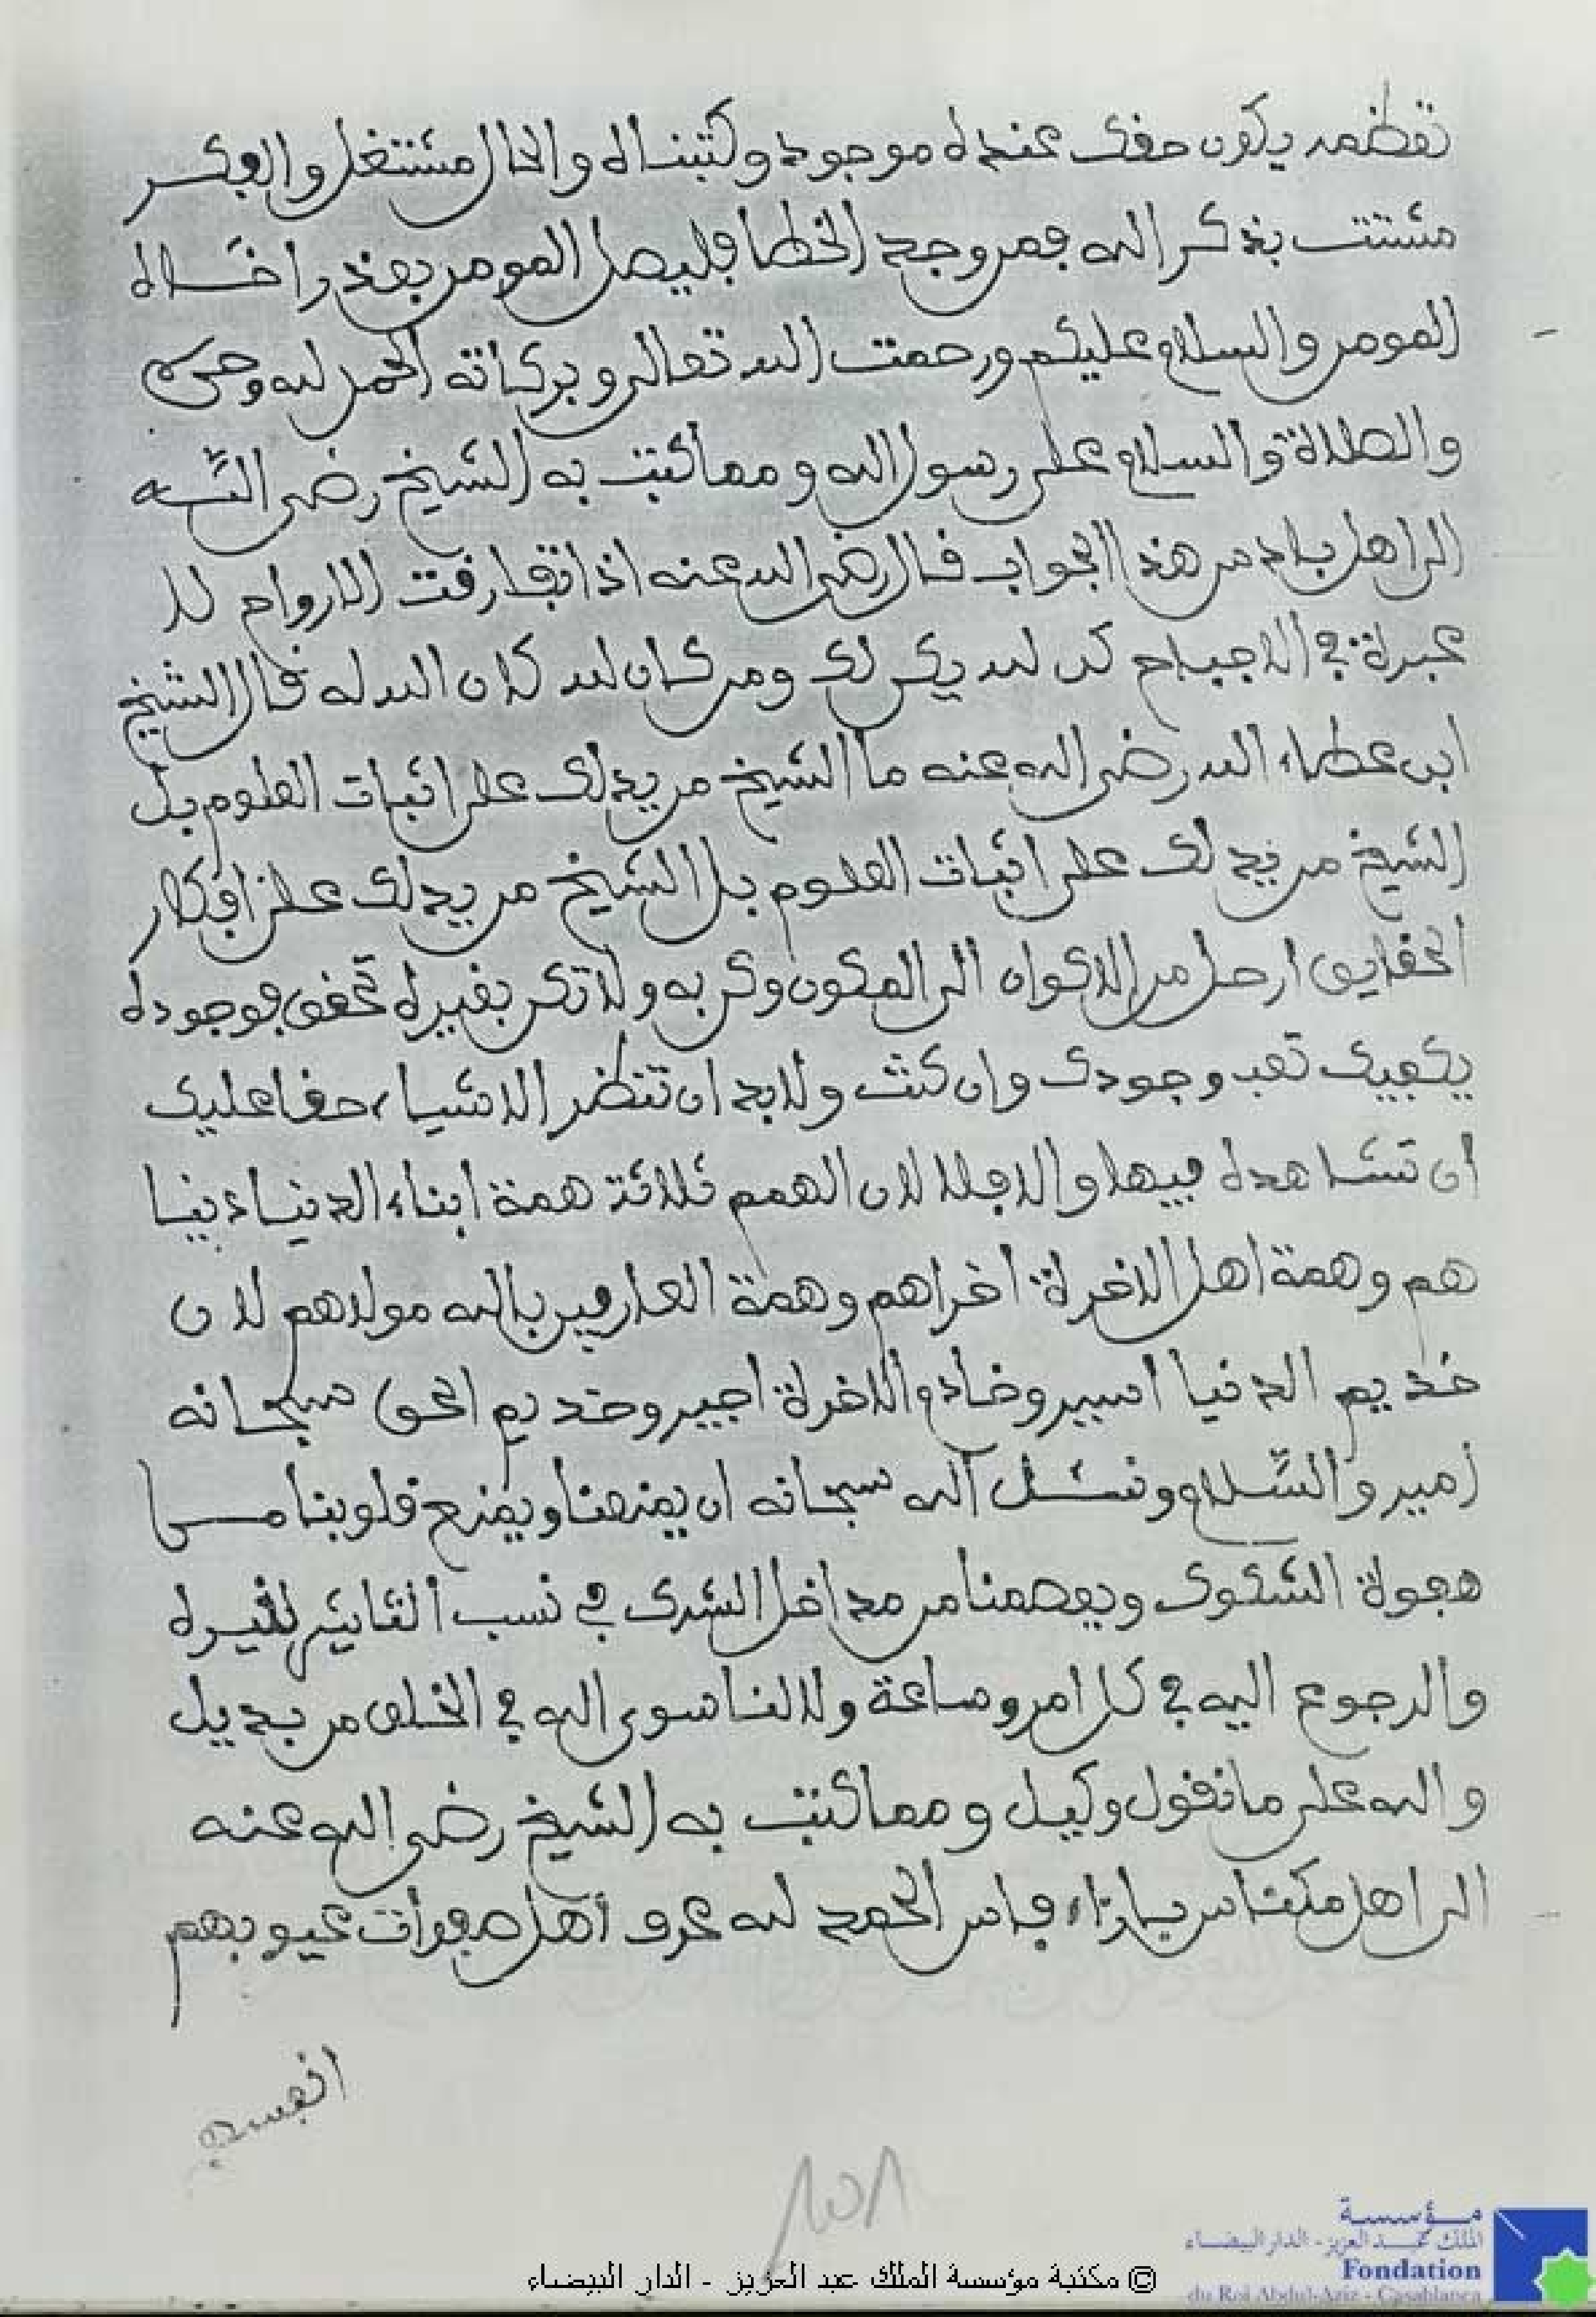 تعظمه يكون حقك عنده موجود وكتبناه والحال مشتغل والفكر
مشتت بذكر الله فمن وجد الخطا فليصل المومن بعذر اخاه
المومن والسلام عليكم ورحمت الله تعالى وبركاته الحمد لله وحده
والصلاة والسلام على رسول الله ومما كتب به الشيخ رضي الله
الى اهل بلد من هذا الجواب قال رضي الله عنه اذا تفارقت الارواح لا
عبرة في الاجباح كن لله يكن لك ومن كان لله كان الله له قال الشيخ
ابن عطاء الله رضي الله عنه ما الشيخ من يدلك على اثبات العلوم بل
الشيخ من يدلك على اثبات العلوم بل الشيخ من يدلك على افكار
الحقايق ارحل من الاكوان الى المكون وكن به ولا تكن بغيره تحقق بوجوده
يكفيك تعب وجودك وان كنت ولابد ان تنظر الاشياء حقا عليك
ان تشاهده فيها والا فلا لان الهمم ثلاثة همة ابناء الدنيا دنيا
هم وهمة اهل الاخرة اخراهم وهمة العارفين بالله مولاهم لان
خديم الدنيا اسير وخادم الاخرة اجير وخديم الحق سبحانه
امير والسلام ونسئل الله سبحانه ان يمنعنا ويمنع قلوبنا من
هفوة الشكوى ويعصمنا من مداخل الشرك في نسب التاثير لغيره
والرجوع اليه في كل امر وساعة ولا لنا سوى الله في الخلق من بديل
والله على ما نقول وكيل ومما كتب به الشيخ رضي الله عنه
الى اهل مكناس بازاء فاس الحمد لله عرف اهل صفوات عيوبهم
انفسهم
١٥٨
© مكتبة مؤسسة الملك عبد العزيز - الدار البيضاء
مؤسسة
الملك عبد العزيز - الدار البيضاء
Fondation
du Roi Abdul-Aziz - Casablanca